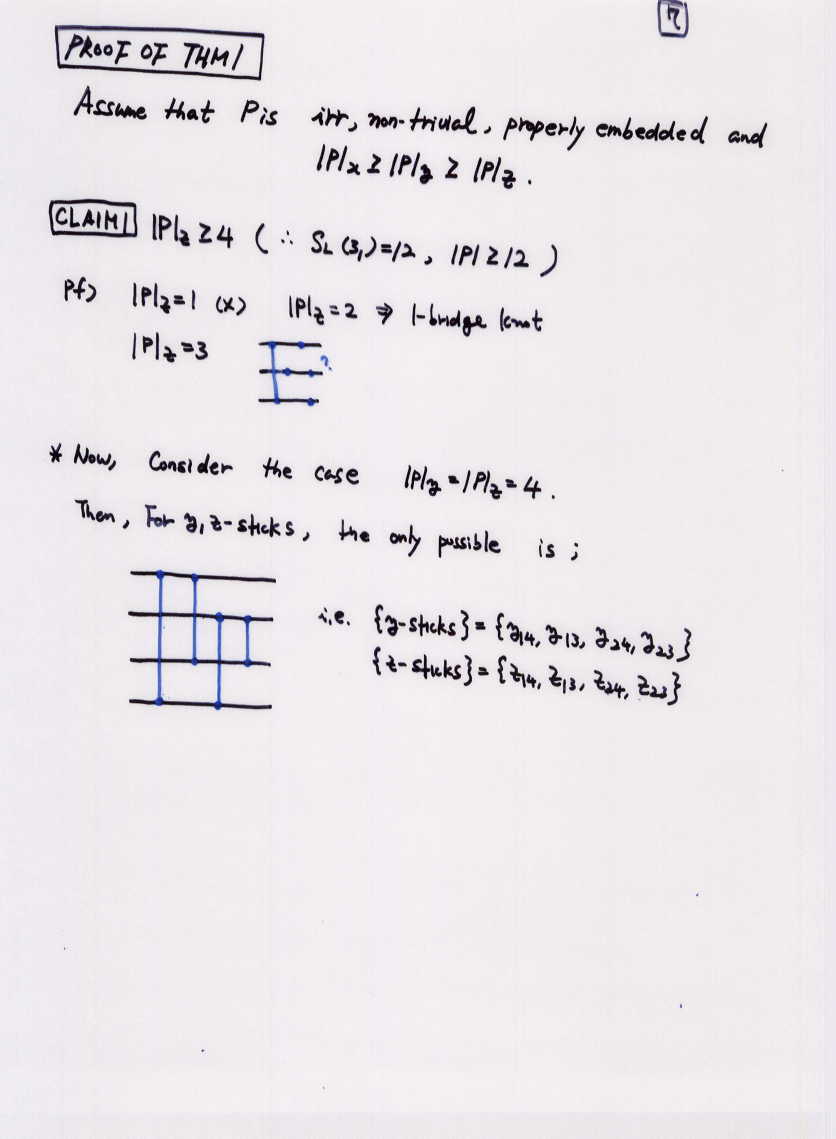 7
PROOF OF THM 1
Assume that P is irr, non-trivial, properly embedded and
|P|x ≥ |P|y ≥ |P|z .
CLAIM 1 |P|z ≥ 4 ( ∴ SL (3,)=12, |P| ≥ 12 )
Pf> |P|z=1 (x) |P|z=2 ⇒ 1-bridge knot
|P|z=3 ?
* Now, Consider the case |P|y = |P|z = 4 .
Then, For y, z-sticks, the only possible is ;
i.e. {y-sticks} = {y14, y13, y24, y23}
{z-sticks} = {z14, z13, z24, z23}